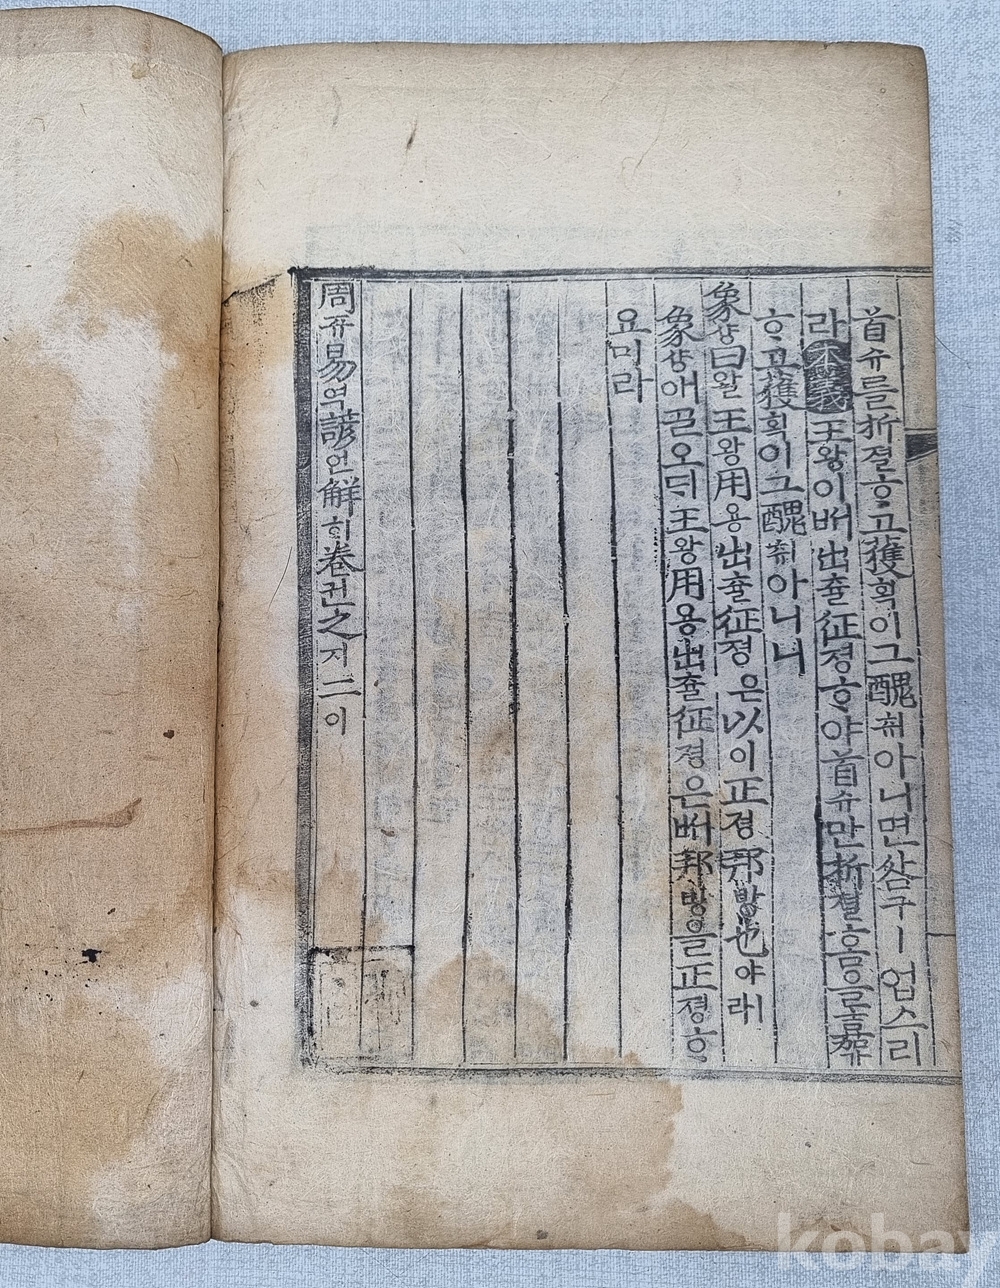 首슈를折졀ᄒᆞ고獲획이그醜ᄎᆔ아니면咎구ㅣ업스리
라本義王왕이ᄡᅥ出츌征졍ᄒᆞ야首슈만折졀홈을嘉가
ᄒᆞ고獲획이그醜ᄎᆔ아니니
象샹曰왈王왕用용出츌征졍은以이正졍邦방也야ㅣ라
象샹애ᄀᆞᆯ오ᄃᆡ王왕用용出츌征졍은ᄡᅥ邦방을正졍ᄒᆞ
요미라
周쥬易역諺언解ᄒᆡ卷권之지二이
kobay